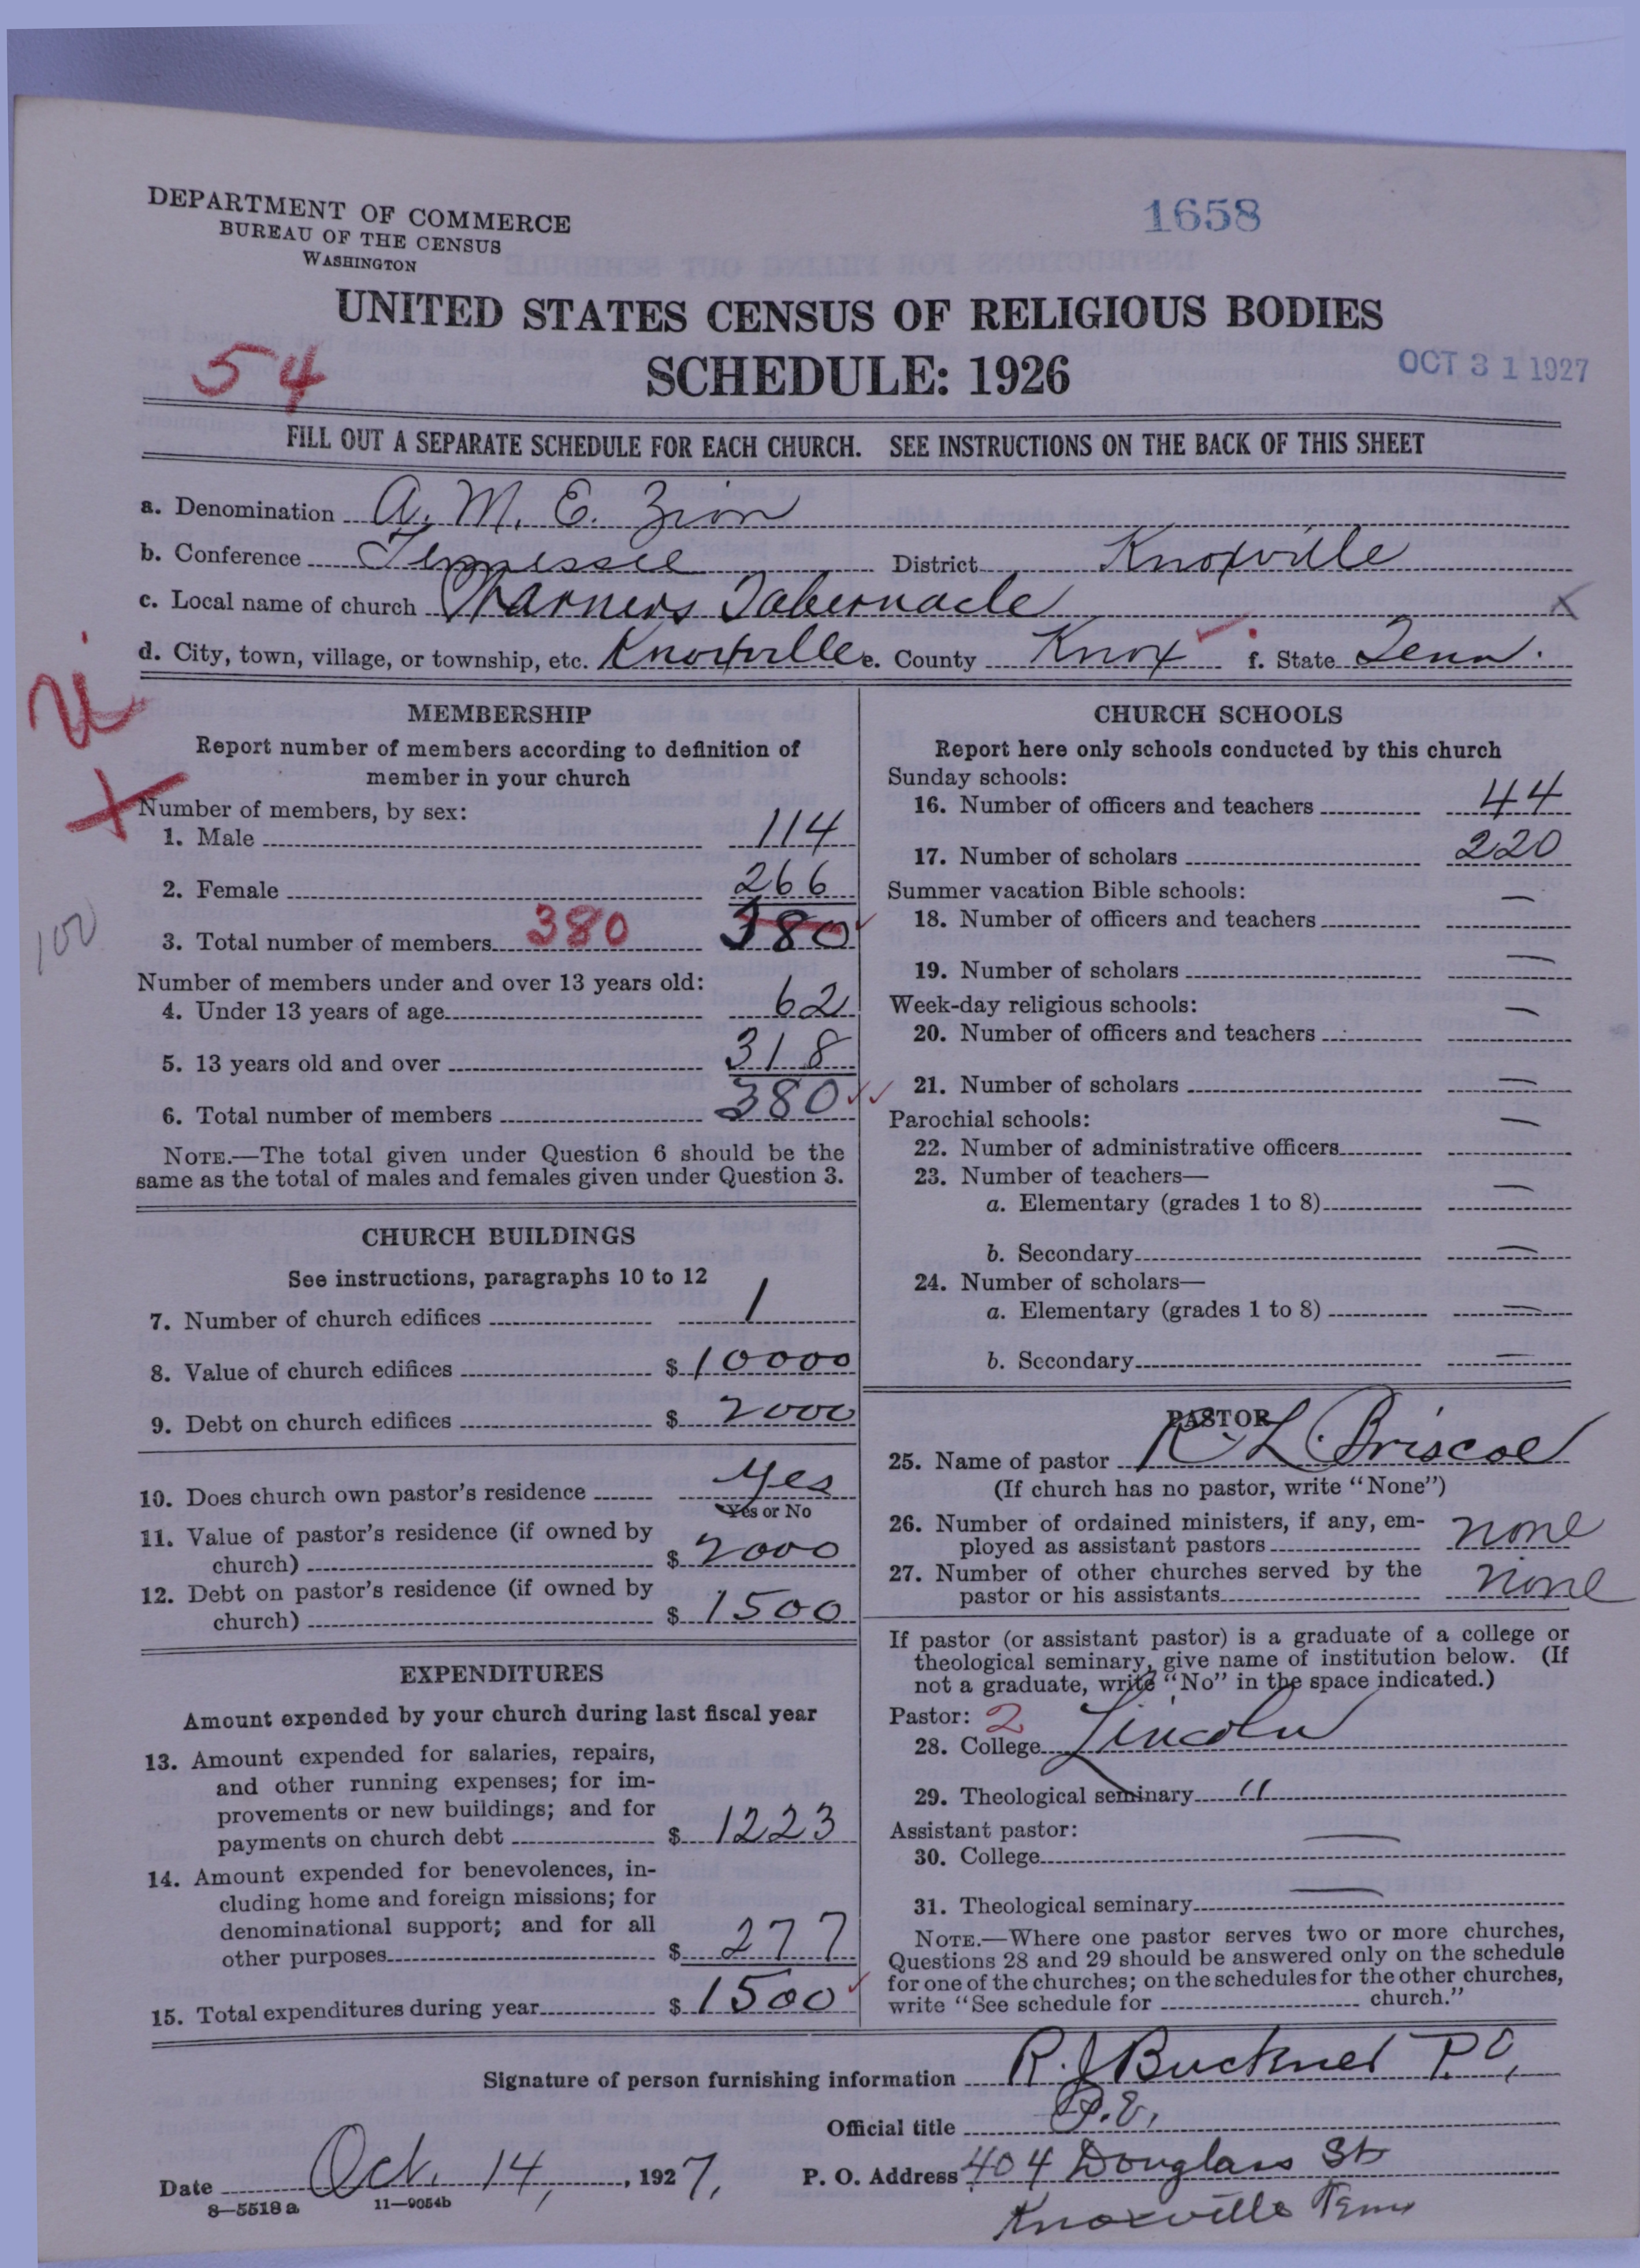 DEPARTMENT OF COMMERCE
BUREAU OF THE CENSUS
WASHINGTON
1658
UNITED STATES CENSUS OF RELIGIOUS BODIES
54
SCHEDULE: 1926
OCT 31 1927
FILL OUT A SEPARATE SCHEDULE FOR EACH CHURCH. SEE INSTRUCTIONS ON THE BACK OF THIS SHEET
a. Denomination A. M. E. Zion
b. Conference Tennessee District Knoxville
c. Local name of church Warners Tabernacle X
d. City, town, village, or township, etc. Knoxville e. County Knox f. State Tenn.
MEMBERSHIP
Report number of members according to definition of
member in your church
Number of members, by sex:
1. Male 114
2. Female 266
3. Total number of members 380 380
100
Number of members under and over 13 years old:
4. Under 13 years of age 62
5. 13 years old and over 318
6. Total number of members 380
NOTE.—The total given under Question 6 should be the
same as the total of males and females given under Question 3.
CHURCH BUILDINGS
See instructions, paragraphs 10 to 12
7. Number of church edifices 1
8. Value of church edifices $ 10000
9. Debt on church edifices $ 2000
10. Does church own pastor's residence Yes
Yes or No
11. Value of pastor's residence (if owned by
church) $ 2000
12. Debt on pastor's residence (if owned by
church) $ 1500
EXPENDITURES
Amount expended by your church during last fiscal year
13. Amount expended for salaries, repairs,
and other running expenses; for im-
provements or new buildings; and for
payments on church debt $ 1223
14. Amount expended for benevolences, in-
cluding home and foreign missions; for
denominational support; and for all
other purposes $ 277
15. Total expenditures during year $ 1500
CHURCH SCHOOLS
Report here only schools conducted by this church
Sunday schools:
16. Number of officers and teachers 44
17. Number of scholars 220
Summer vacation Bible schools:
18. Number of officers and teachers —
19. Number of scholars —
Week-day religious schools:
20. Number of officers and teachers —
21. Number of scholars —
Parochial schools:
22. Number of administrative officers —
23. Number of teachers—
a. Elementary (grades 1 to 8) —
b. Secondary —
24. Number of scholars—
a. Elementary (grades 1 to 8) —
b. Secondary —
PASTOR
25. Name of pastor R L Briscoe
(If church has no pastor, write "None")
26. Number of ordained ministers, if any, em-
ployed as assistant pastors none
27. Number of other churches served by the
pastor or his assistants none
If pastor (or assistant pastor) is a graduate of a college or
theological seminary, give name of institution below. (If
not a graduate, write "No" in the space indicated.)
Pastor: 2
28. College Lincoln
29. Theological seminary "
Assistant pastor:
30. College —
31. Theological seminary —
NOTE.—Where one pastor serves two or more churches,
Questions 28 and 29 should be answered only on the schedule
for one of the churches; on the schedules for the other churches,
write "See schedule for church."
Signature of person furnishing information R. J Buckner P.E,
Official title P.E,
Date Oct. 14, , 1927, P. O. Address 404 Douglass St
Knoxville Tenn
8—5518 a 11—9054b